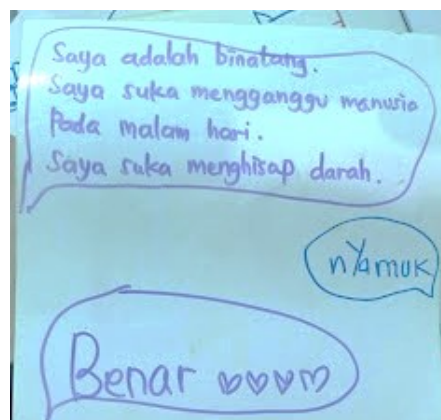 Saya adalah binatang.
Saya suka mengganggu manusia
Pada malam hari.
Saya suka menghisap darah.
nyamuk
Benar ♡♡♡♡